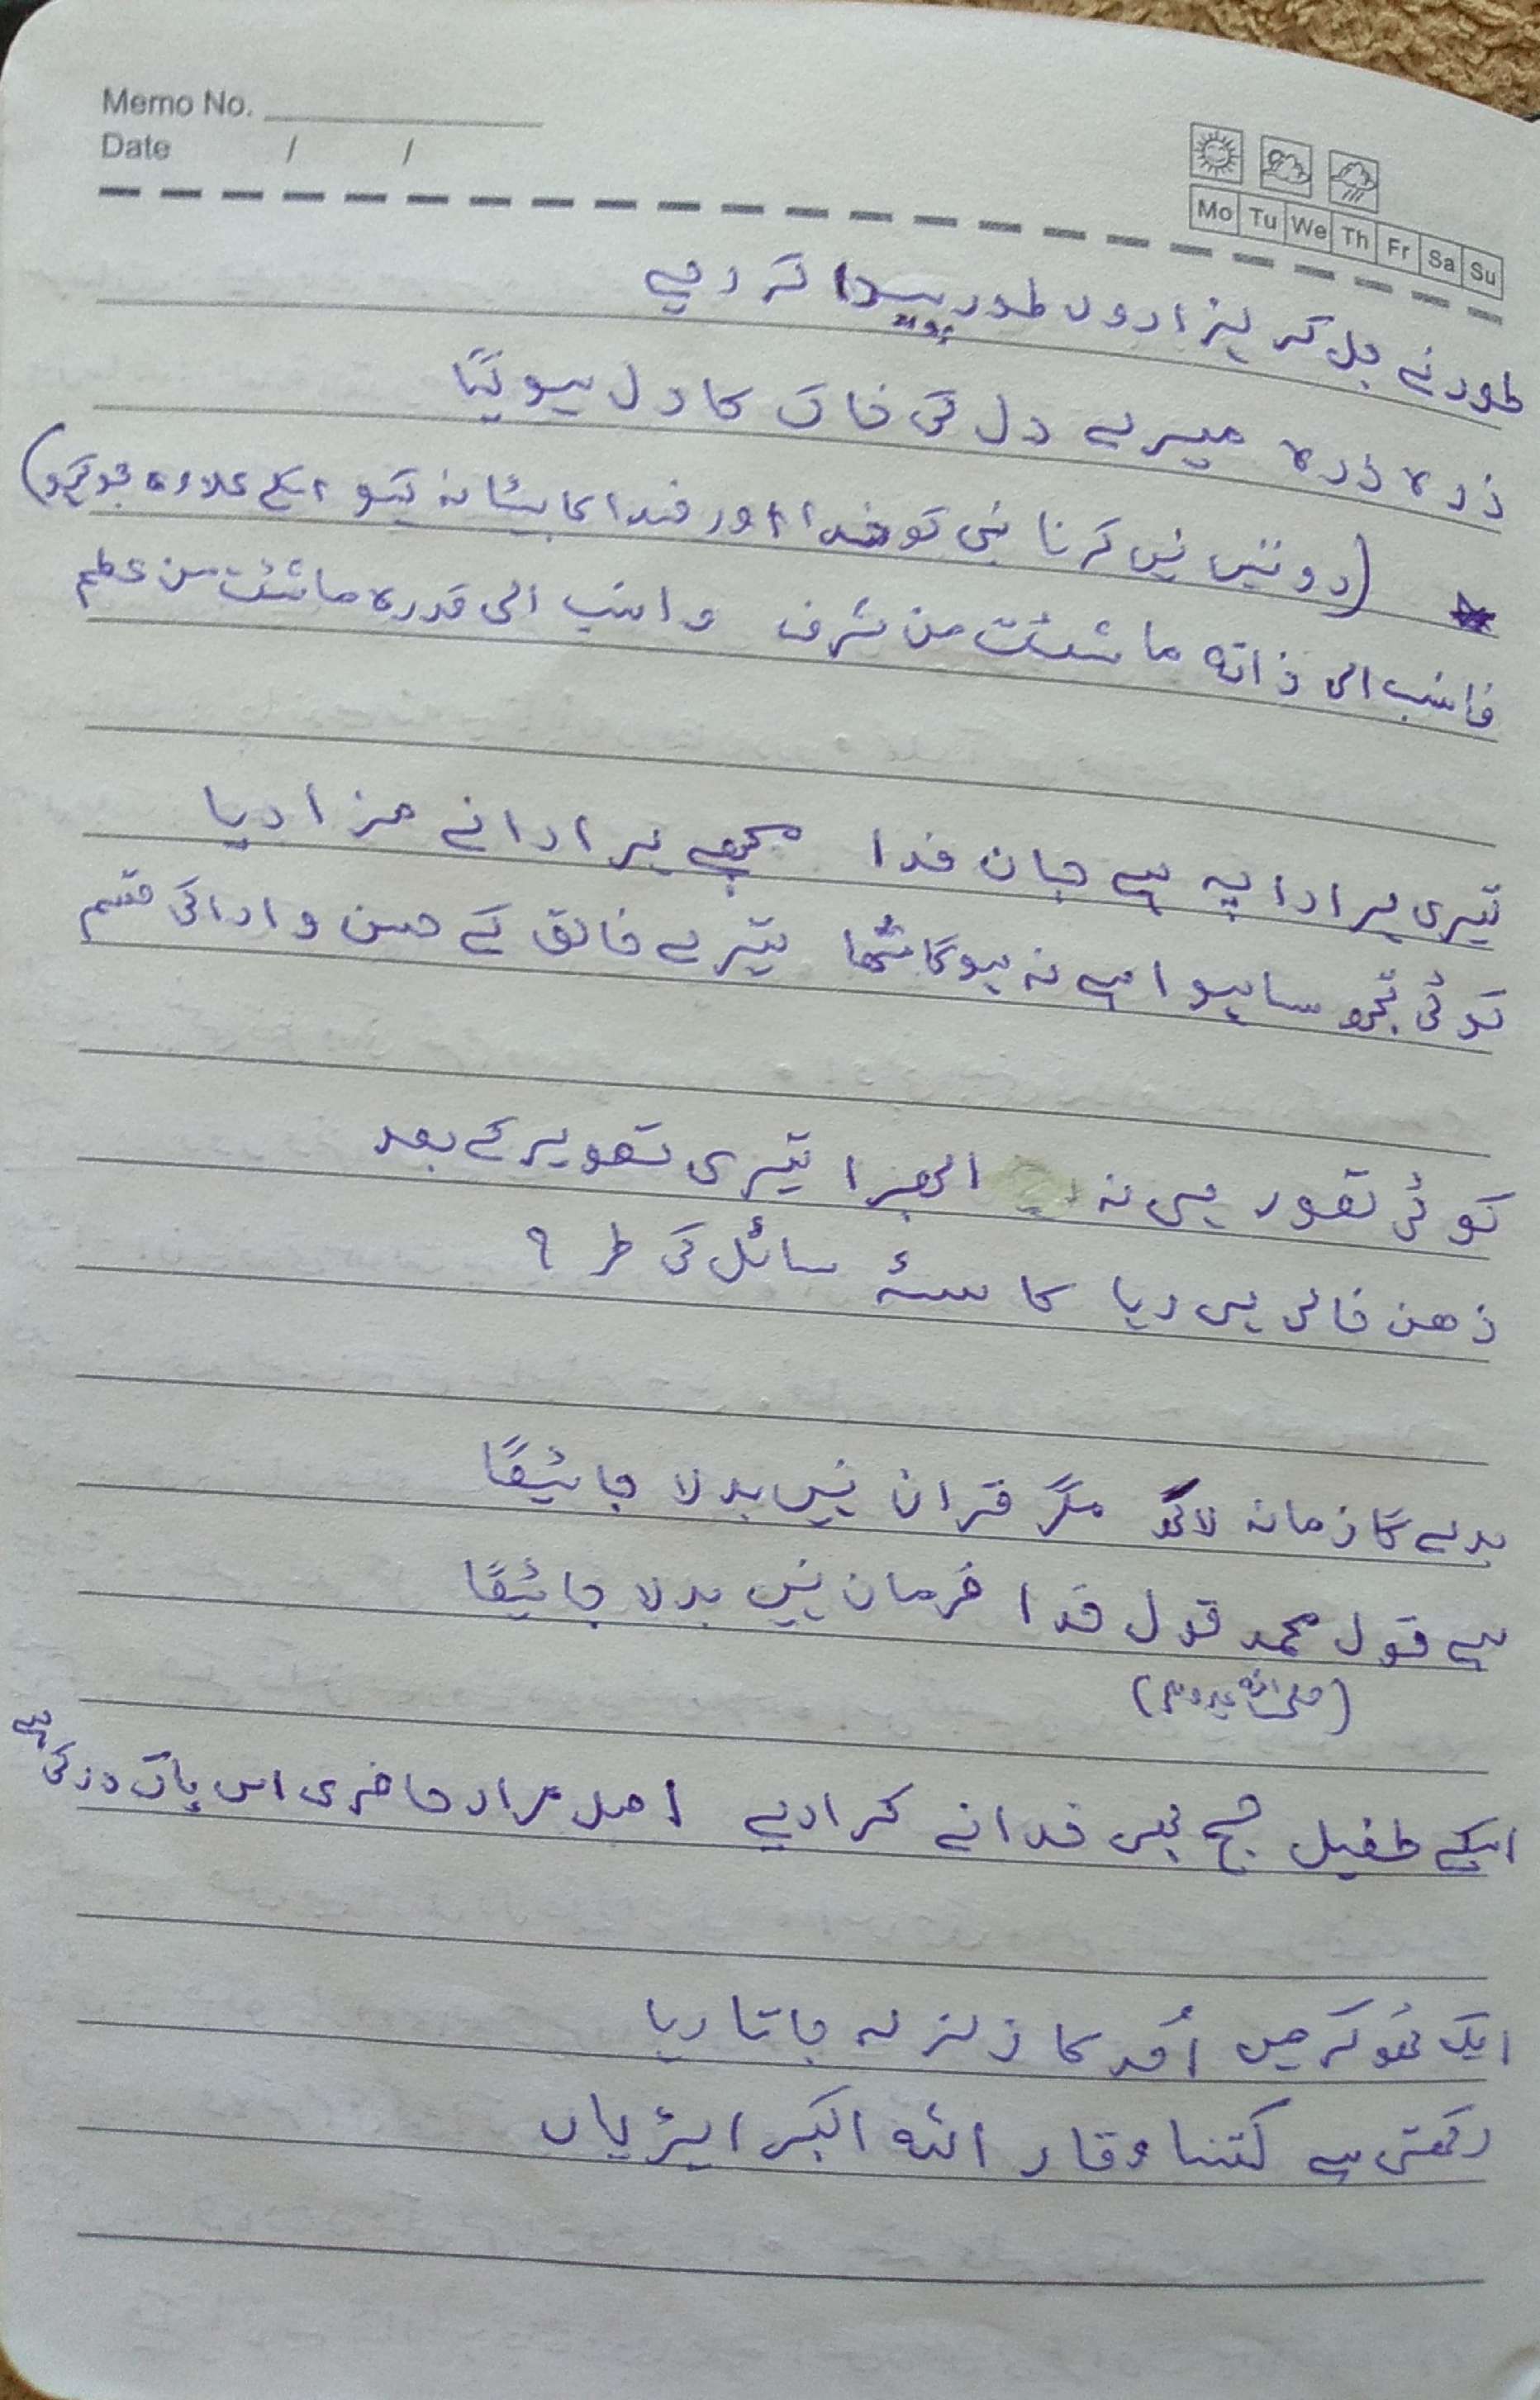 Memo No.
Date / /
Mo Tu We Th Fr Sa Su
طور نے جل کر ہزاروں طور پیدا کر دیے
ذرہ ذرہ میرے دل کی خاک کا دل ہو گیا
(دو تیں نہیں کرنا نبی کو خدا اور خدا کا بیٹا نہ کہو اسکے علاوہ جو کہو)
فانسب الی ذاتہ ما شئت من شرف وانسب الی قدرہ ما شئت من عظم
تیری ہر ادا پہ ہے جان فدا مجھے ہر ادا نے مزا دیا
کوئی تجھ سا ہوا ہے نہ ہوگا شہا تیرے خالق کے حسن و ادا کی قسم
کوئی تصور ہی نہ ابھرا تیری تصویر کے بعد
ذھن خالی ہی رہا کاسۂ سائل کی طرح
بدلے گا زمانہ لاکھ مگر قران نہیں بدلا جائیگا
ہے قول محمد قول خدا فرمان نہیں بدلا جائیگا
(صلی اللہ علیہ وسلم)
اسکے طفیل حج بھی خدا نے کرا دیے اصل مراد حاضری اس پاک در کی ہے
ایک ٹھوکر میں اُحد کا زلزلہ جاتا رہا
رکھتی ہے کتنا وقار اللہ اکبر ایڑیاں